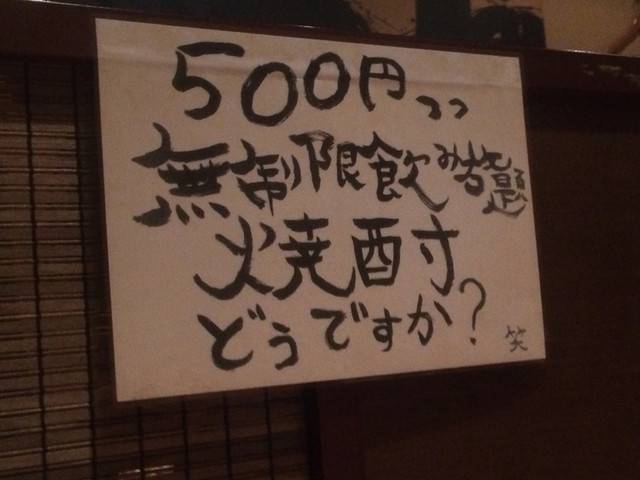 500円っっ
無制限飲み放題
焼酎
どうですか?
笑